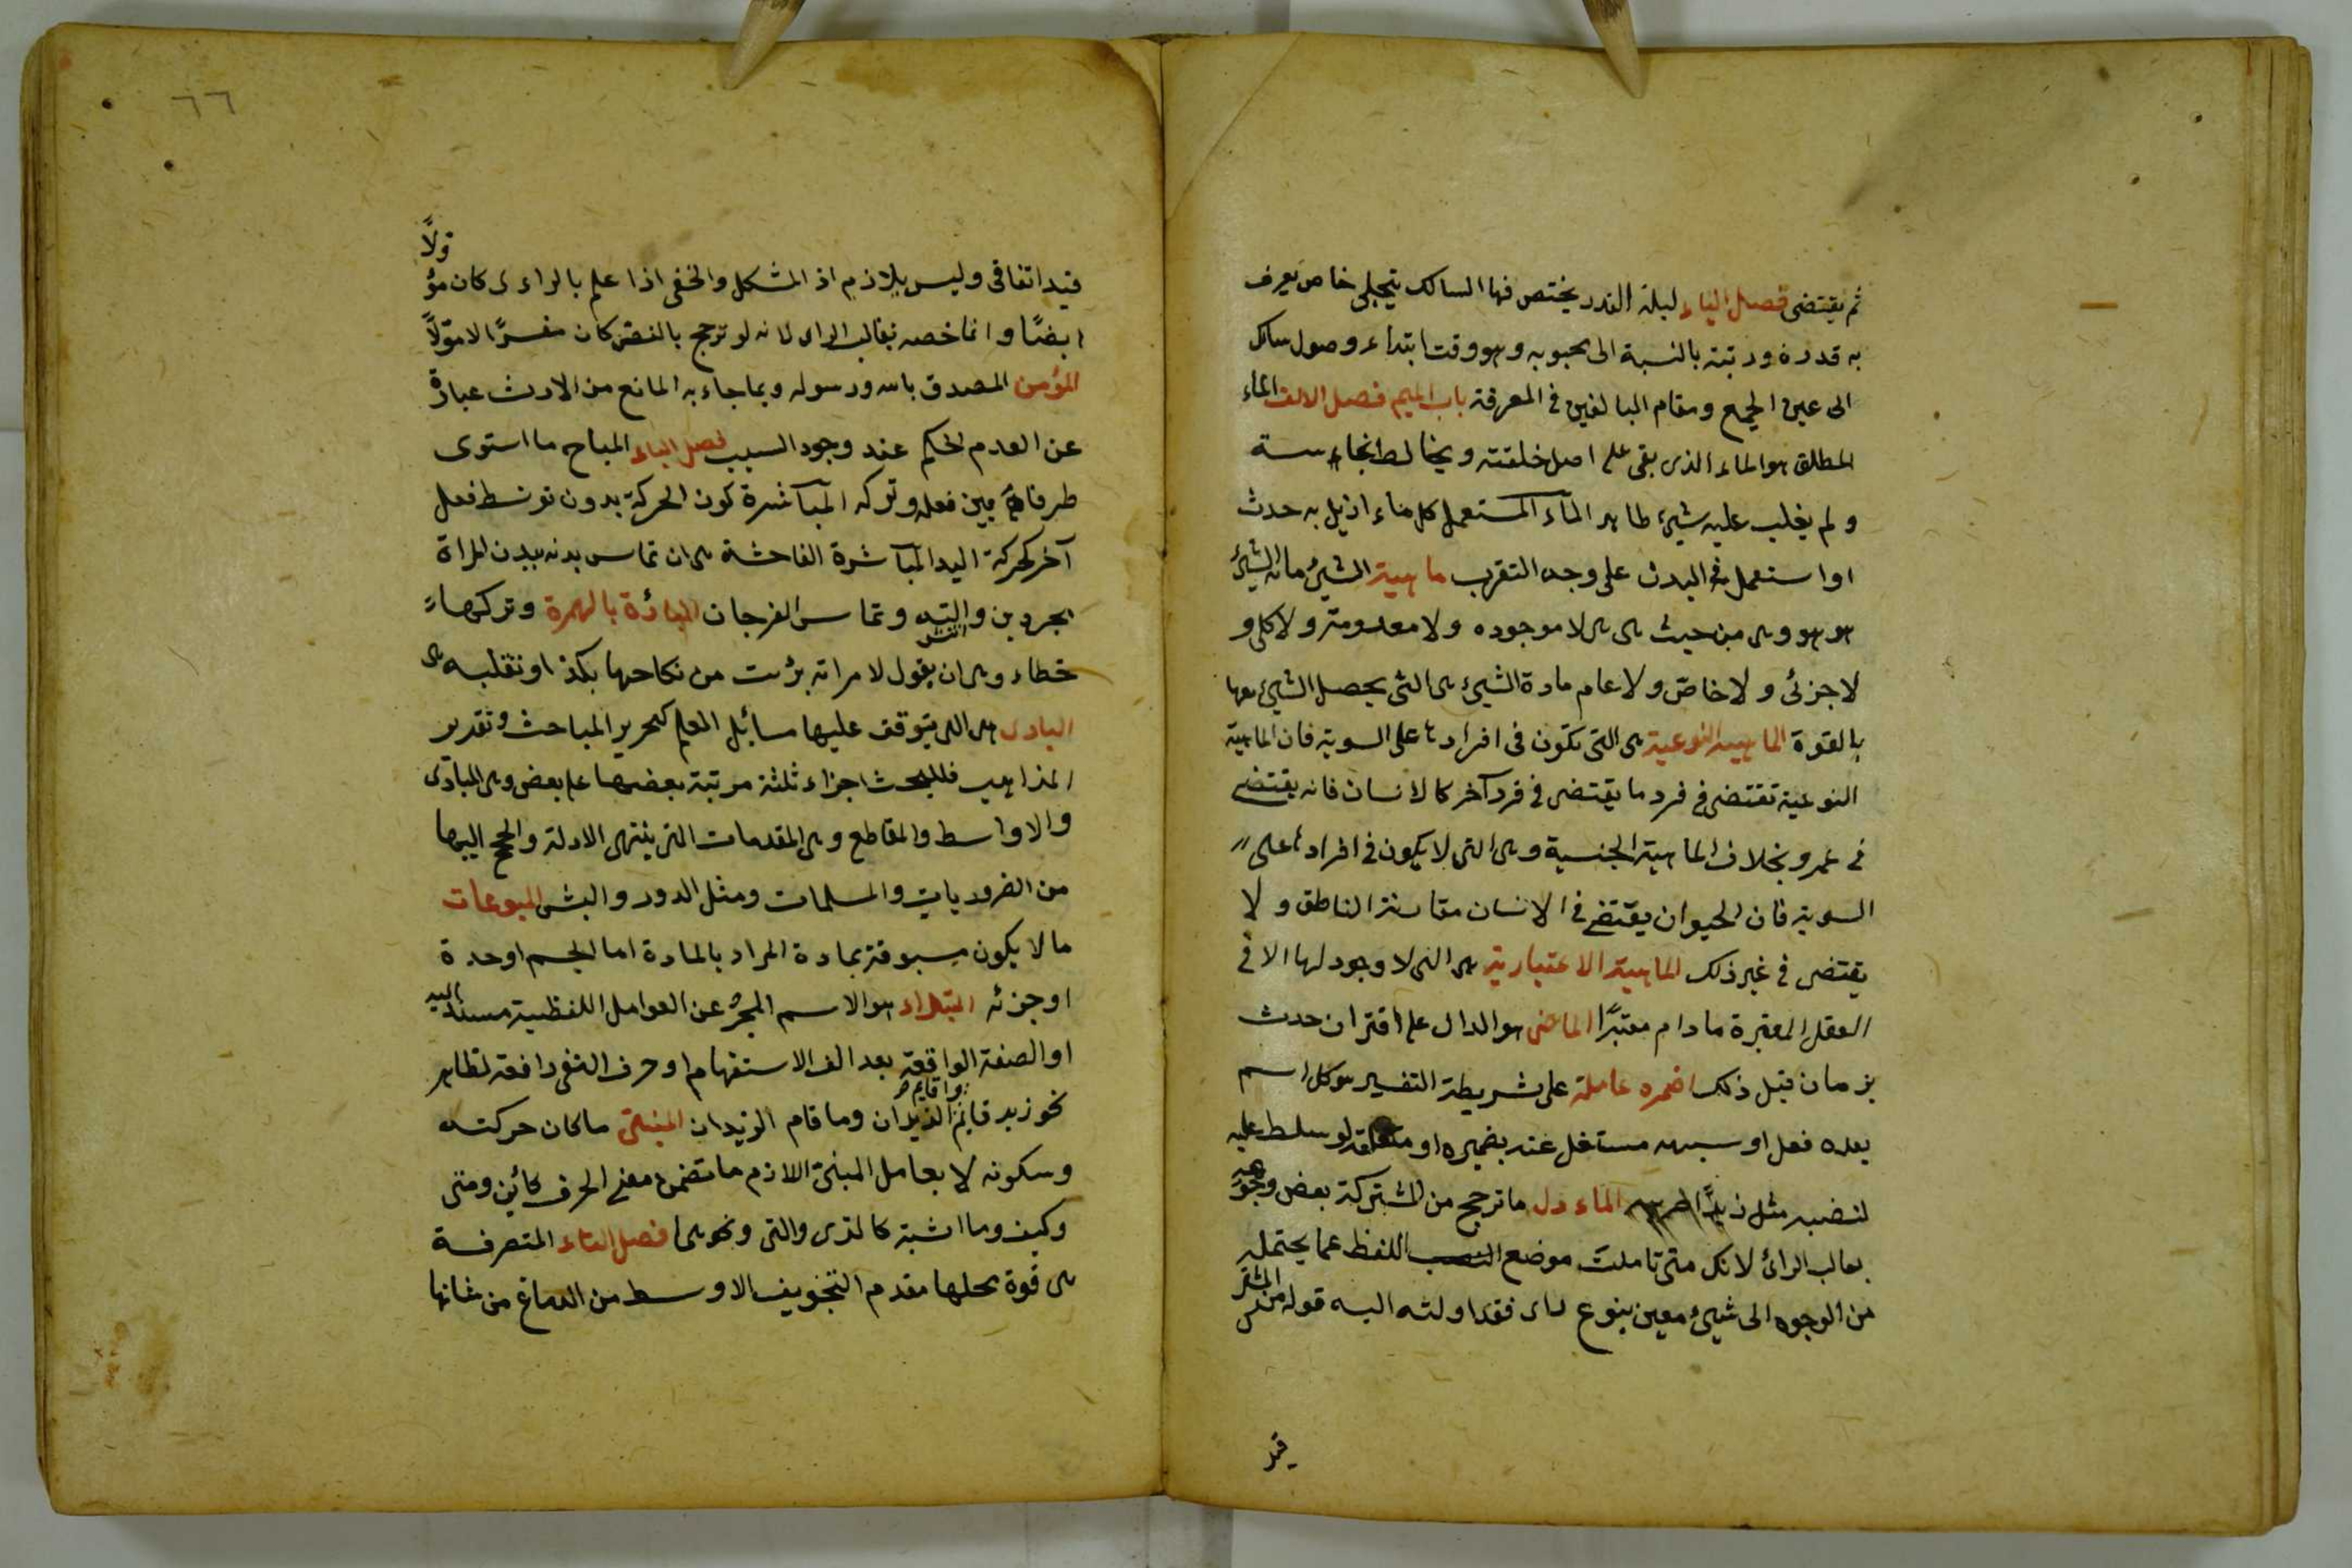 ثم يقتضى فصل الياء ليلة القدر يختص فيها السالك بتجلى خاص يعرف
به قدره ورتبته بالنسبة الى محبوبه وهو وقت ابتداء وصول سالك
الى عين الجمع ومقام البالغين فى المعرفة باب الميم فصل الالف الماء
المطلق هو الماء الذى بقى على اصل خلقته ويخالطه نجاسة
ولم يغلب عليه شيء طاهر الماء المستعمل كل ماء ازيل به حدث
او استعمل فى البدن على وجه التقرب ماهية الشيئ ما به الشيئ
هو هو وهى من حيث هى هى لا موجوده ولا معدومة ولا كلى و
لا جزئى ولا خاص ولا عام مادة الشيئ هى التى يحصل الشيئ معها
بالقوة الماهية النوعية هى التى تكون فى افرادها على السوية فان الماهية
النوعية تقتضى فى فرد ما يقتضى فى فرد آخر كالانسان فانه يقتضى
فى عمرو بخلاف الماهية الجنسية وهى التى لا يكون فى افرادها على
السوية فان الحيوان يقتضى فى الانسان مقارنة الناطق ولا
يقتضى فى غير ذلك الماهية الاعتبارية هى التى لا وجود لها الا فى
العقل المعتبرة ما دام معتبرًا الماضى هو الدال على اقتران حدث
بزمان قبل ذلك اضمره عاملة على شريطة التفسير هو كل اسم
بعده فعل او شبهه مشتغل عنه بضميره او متعلقه لو سلط عليه
لنصبه مثل زيدًا الماءول ما ترجح من المشتركة بعض وجوهه
بغالب الراى لانك متى تأملت موضع اللفظ عما يحتمله
من الوجوه الى شيئ معين بنوع راى فقد اولته اليه قوله من المشترك
قيد
٦٦
قيد اتفاقى وليس بلازم اذ المشكل والخفى اذا علم بالراءى كان مؤولًا
ايضًا وانما خصه بغالب الراى لانه لو ترجح بالنص كان مفسرًا لا مؤولًا
المؤمن المصدق بالله ورسوله وبما جاء به المانع من الارث عبارة
عن العدم الحكم عند وجود السبب فصل الباء المباح ما استوى
طرفاه بين فعله وتركه المباشرة كون الحركة بدون توسط فعل
آخر كحركة اليد المباشرة الفاحشة هى ان تماس بدنه ببدن المراة
مجردين وانتشر آلته وتماس الفرجان المبارئة بالهمزة وتركها
خطاء وهى ان يقول لامراته برئت من نكاحها بكذا وتقبله هى
المبادى هى التى يتوقف عليها مسائل العلم كتحرير المباحث وتقدير
المذاهب فللبحث اجزاء ثلثة مرتبة بعضها على بعض وهى المبادى
والاواسط والمقاطع وهى المقدمات التى ينتهى الادلة والحجج اليها
من الضروريات والمسلمات ومثل الدور والتس المبدعات
ما لا يكون مسبوقة بمادة المراد بالمادة اما الجسم او حده
او جزئه المبتداء هو الاسم المجرد عن العوامل اللفظية مسندا اليه
او الصفة الواقعة بعد الف الاستفهام او حرف النفى رافعة لظاهر
نحو زيد قايم واقايم الزيدان وما قام الزيدان المبنى ما كان حركته
وسكونه لا بعامل المبنى اللازم ما تضمن معنى الحرف كأين ومتى
وكيف وما اشبه كالذى والتى ونحوها فصل التاء المتصرفة
هى قوة محلها مقدم التجويف الاوسط من الدماغ من شانها